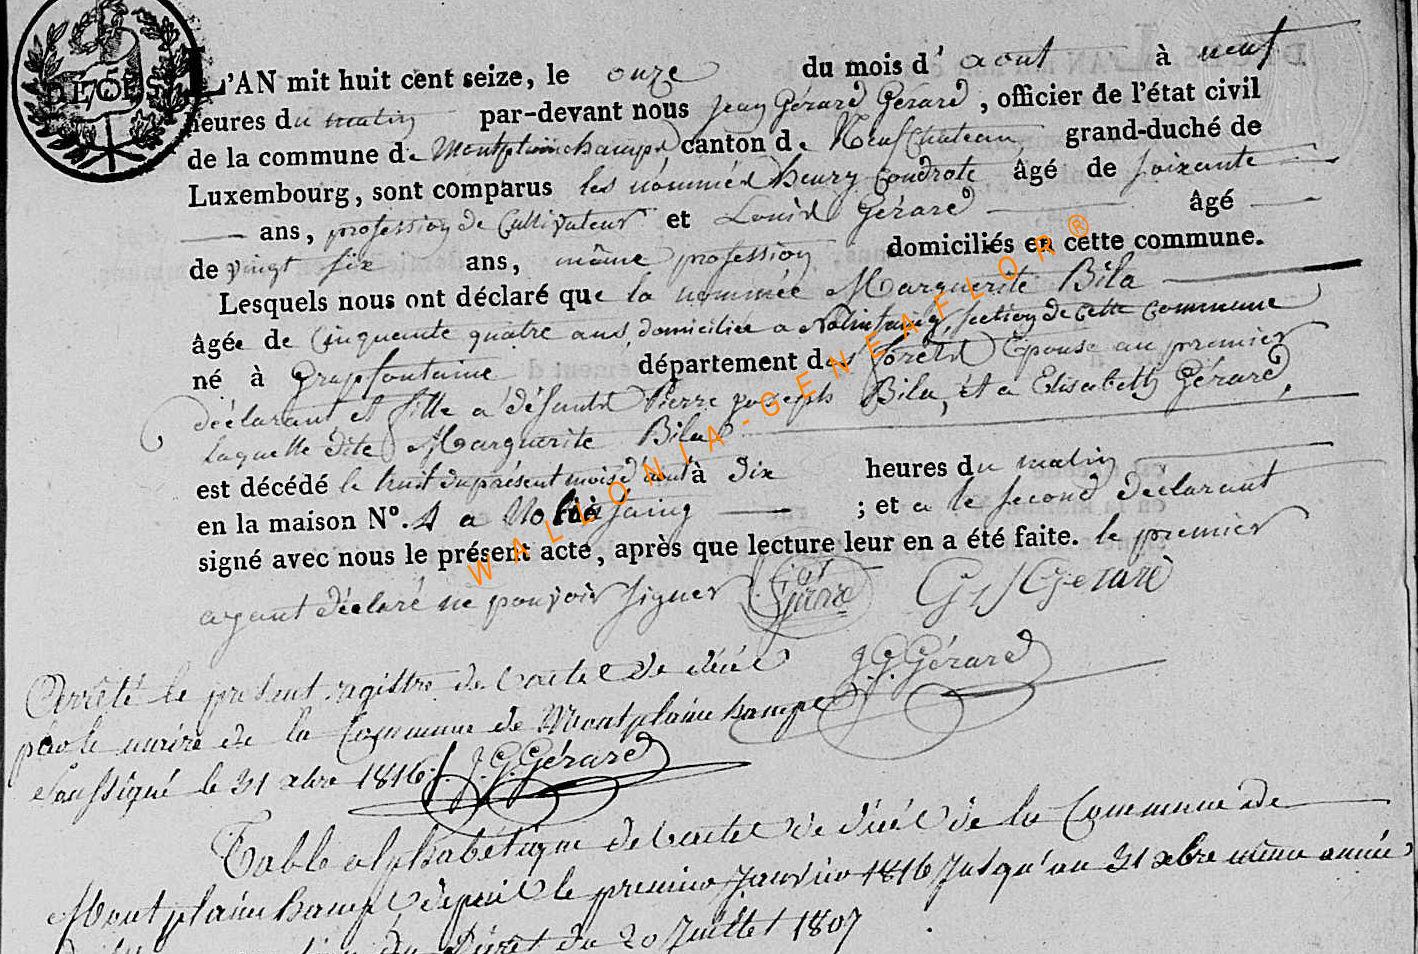 DÉCÈS
L'AN mit huit cent seize, le onze du mois d' aout à neuf
heures du matin par-devant nous Jean Gérard Gérard, officier de l'état civil
de la commune de Montplainchamps, canton de Neufchateau, grand-duché de
Luxembourg, sont comparus les nommés henry Condrote âgé de soixante
ans, profession de Cultivateur et Louis Gérard âgé
de vingt six ans, même profession domiciliés en cette commune.
Lesquels nous ont déclaré que la nommée Marguerite Bila
âgée de Cinquente quatre ans, domiciliée a Nolinfaing, section de cette commune
né à Grapfontaine département des forets Epouse au premier
déclarant et fille a défunts Pierre joseph Bila, et a Elisabeth Gérard,
laquelle dite Marguerite Bila
est décédé le huit du présent mois d'aout à dix heures du matin
en la maison N°. 4 a Nolinfaing ; et a le second déclarant
signé avec nous le présent acte, après que lecture leur en a été faite. le premier
ayant déclaré ne pouvoir signer Gérard
J. G. Gérard
Arrêté le présent registre de l'actes de décé
par le maire de la Commune de Montplainchamps
soussigné le 31 xbre 1816. J. G. Gérard
Table alphabétique de l'actes de décés de la Commune de
Montplainchamps depuis le premier Janvier 1816 Jusqu'au 31 xbre même année
du Décret du 20 Juillet 1807
WALLONIA-GENEAFLOR®